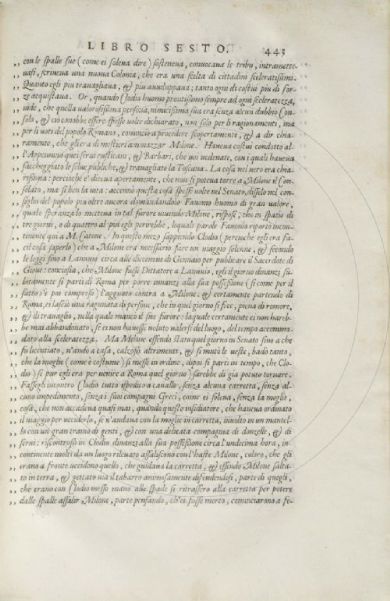 LIBRO SESTO. 443
con le spalle sue (come ei soleua dire) sosteneua, conuocaua le tribu, intrametteuasi, scriueua una nuoua Colonia, che era una scelta di cittadini sceleratissimi.
Quanto egli piu trauagliaua, & piu auuiluppaua; tanto ogni dì costui piu di forze acquistaua. Or, quando
huomo prontissimo sempre ad ogni sceleratezza,
uide, che
nimicissimo, era senza alcun dubbio Consolo,
& cio conobbe essere spesse uolte dichiarato, non solo per li ragionamenti, ma
per li uoti del popolo Romano, cominciò a procedere scopertamente, & a dir chiaramente, che gli era di mestieri amazzar Milone. Haueua costui condotto
dall'Appennino questi serui rusticani, & Barbari, che uoi uedeuate, con i quali haueua
saccheggiato le selue publiche, & trauagliato la Toscana. La cosa non era
percioche e' diceua apertamente, che non si poteua torre a Milone il Consolato, ma si ben la uita: accennò questa cosa spesse uolte nel Senato, disselo nel consiglio del popolo
Fauonio huomo di gran ualore,
quale speranza lo metteua in tal furore uiuendo Milone, rispose; che in spatio di
tre giorni, o di quattro al piu egli perirebbe, lequali parole Fauonio riportò incontinente qui a M. Catone. In questo mezo sappiendo Clodio (percioche egli era facil cosa saperlo) che a Milone era necessario fare un uiaggio solenne, & secondo
le leggi sino a Lanuuio circa alli diecinoue di Gennaio per publicare il Sacerdote di
Gioue: conciosia, che Milone fusse Dittatore a Lanuuio, egli il giorno dinanzi subitamente si partì di Roma per porre innanzi alla sua possessione (si come per il
fatto s'è poi compreso) l'agguato contra a Milone; & certamente partendo di
Roma, ei lasciò una ragunata di persone, che in quel giorno si fece, piena di romore,
& di trauaglio, nella quale mancò il suo furore: la quale certamente ei non harebbe mai abbandonato, se ei non hauesse uoluto ualersi del luogo, del tempo accommodato alla sceleratezza. Ma Milone essendo stato quel giorno in Senato sino a che
fu licentiato, n'andò a casa, calzossi altrimenti, & si mutò le ueste, badò tanto,
che la moglie (come è costume) si messe in ordine, dipoi si partì in tempo, che Clodio (se pur egli era per uenire a Roma quel giorno) sarebbe di già potuto tornare.
Fassegli incontro Clodio tutto ispedito a cauallo, senza alcuna carretta, senza alcuno impedimento, senza i suoi compagni Greci, come ei soleua, senza la moglie,
cosa, che non accadeua quasi mai, quando questo insidiatore, che haueua ordinato
il uiaggio per ucciderlo, se n'andaua con la moglie in carretta, inuolto in un mantello con un gran traino di genti, & con una delicata compagnia di donzelle, & di
serui: riscontrossi in Clodio dinanzi alla sua possessione circa l'undecima hora, incontinente molti da un luogo rileuato assalirono con l'haste Milone, coloro, che gli
erano a fronte uccidono quello, che guidaua la carretta, & essendo Milone saltato in terra, & gettato uia il tabarro animosamente difendendosi, parte di quegli,
che erano con Clodio messo mano alle spade si ritrassero alla carretta per potere
dalle spalle assalir Milone, parte pensando, ch'ei fosse morto, cominciarono a fe-